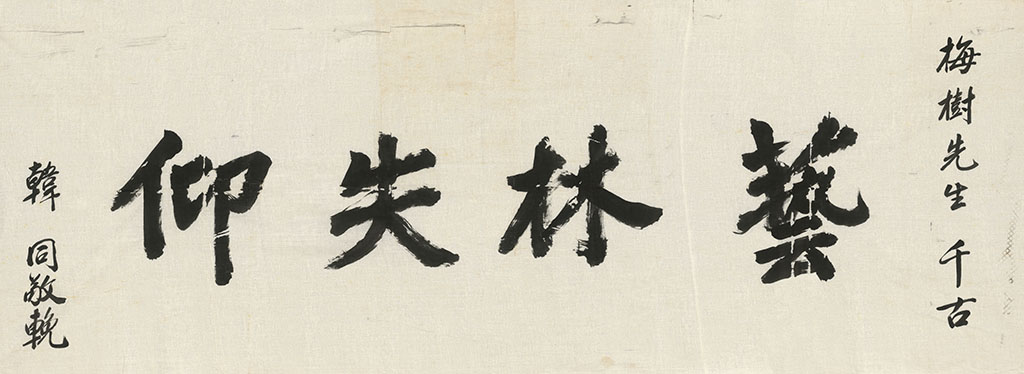 梅樹先生 千古
藝林失仰
韓 同敬輓